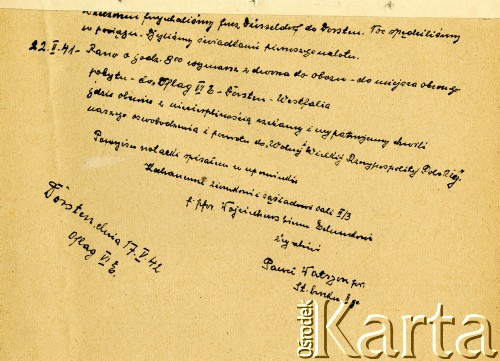 wieczorem przyjechaliśmy przez Düsseldorf do Dorsten. Noc spędziliśmy
w pociągu. Byliśmy świadkami pierwszego nalotu.
22.V.41 - Rano o godz. 8oo wymarsz z dworca do obozu - do miejsca obecnego
pobytu - do Oflag VI E - Dorsten - Westfalia
gdzie obecnie z niecierpliwością czekamy i wypatrujemy chwili
naszego oswobodzenia i powrotu do "Wolnej Wielkiej Rzeczypospolitej Polskiej"
Powyższe notatki spisałem w upominku
Kochanemu ziomkowi i sąsiadowi sali II/3
p. ppor. Edmundowi
życzliwi
Paweł por.
Dorsten, dnia 17.V.42
Oflag VI E.
Ośrodek
Karta